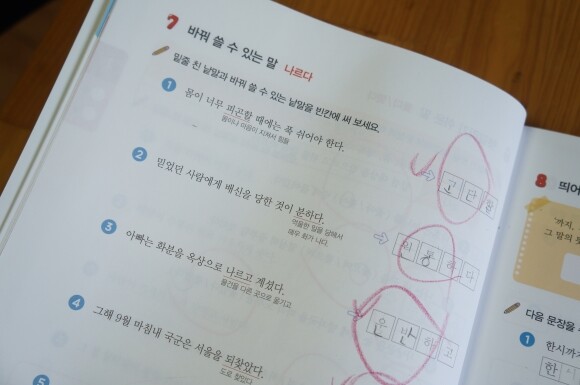 7 바꿔 쓸 수 있는 말 나르다
밑줄 친 낱말과 바꿔 쓸 수 있는 낱말을 빈칸에 써 보세요.
1 몸이 너무 피곤할 때에는 푹 쉬어야 한다.
몸이나 마음이 지쳐서 힘들
고 단 할
2 믿었던 사람에게 배신을 당한 것이 분하다.
억울한 일을 당해서
매우 화가 나다.
하 다
3 아빠는 화분을 옥상으로 나르고 계셨다.
물건을 다른 곳으로 옮기고
운 반 하 고
4 그해 9월 마침내 국군은 서울을 되찾았다.
도로 찾았다
5
8 띄어
'까지,
그 말의 뜻
다음 문장을
1 한시까
한